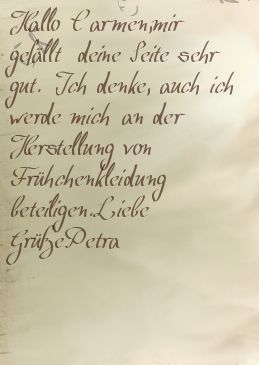 Hallo Carmen,mir
gefällt deine Seite sehr
gut. Ich denke, auch ich
werde mich an der
Herstellung von
Frühchenkleidung
beteiligen.Liebe
GrüßePetra